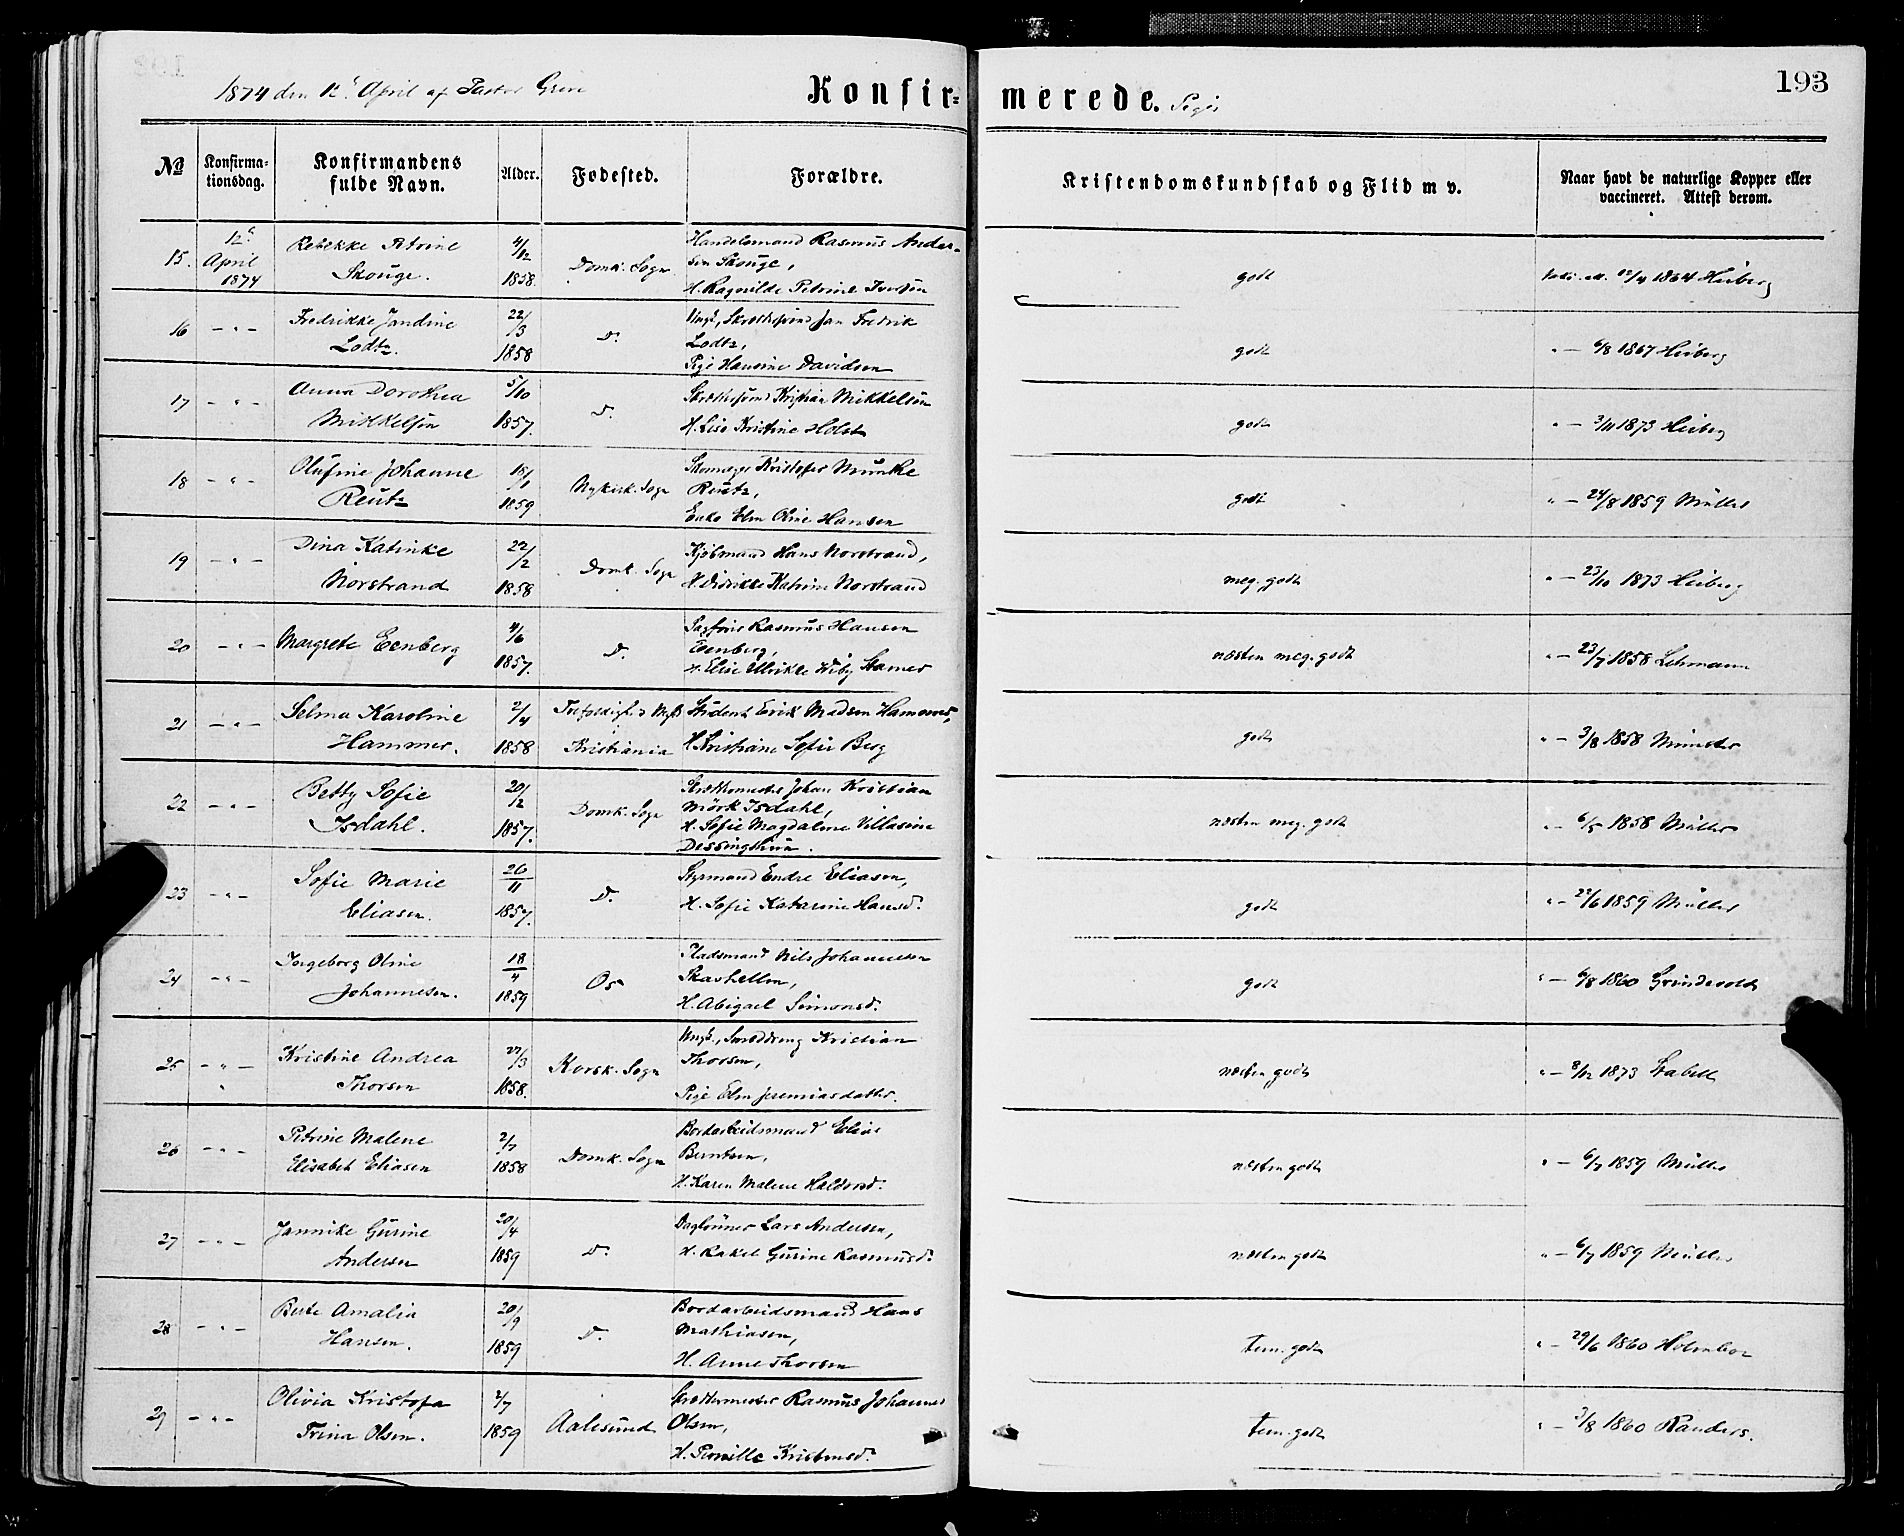 193
1874 den 12' April af Pastor
Konfir= merede. Piger
№ Konfirma-tionsdag. Konfirmandens fulde Navn. Alder. Fødested. Forældre. Kristendomskundskab og Flid m v. Naar havt de naturlige Kopper eller vaccineret. Attest derom.
15. 12' April 1874 Rebekke Petrine Skouge. 4/12 1858. Domk. Sogn Handelsmand Rasmus Andersen Skouge, H. Ragnilde Petrine Iversen godt 12/4 1864 Heiberg
16 - " - Fredrikke Jandine Lodtz. 22/3 1858 D. Ungk., Jan Fredrik Lodtz, Pige Hansine Davidsen godt " - 6/8 1867 Heiberg
17 - " - Anna Dorothea Mikkelsen 5/10 1857. D. Kristian Mikkelsen H. Lise Kristine Holst godt " - 3/11 1873 Heiberg
18 - " - Olufine Johanne Reutz 1859 Nykirk. Sogn Skomager Kristofer Munthe Reutz, Enke Elen Oline Hansen godt " - 24/8 1859 Müller
19 - " - Dina Katinke Norstrand 22/2 1858 Domk. Sogn Kjøbmand Hans Norstrand, H. Didrikke Katrine Norstrand meg. godt " - 23/10 1873 Heiberg
20 - " - Margrete Eenberg 4/6 1857. D. Rasmus Hansen Eenberg, H. Elise Ulrikke Wiby Stamer næsten meg. godt " - 23/7 1858 Lehmann
21 - " - Selma Karoline Hammer. 2/4 1858 Trefoldighed Kristiania Student Erik Madsen Hammer, H. Kristiane Sofie Berg godt " - 3/8 1858 Münster
22 - " - Betty Sofie Isdahl. 20/2 1857. Domk. Sogn Johan Kristian Mörk Isdahl, H. Sofie Magdalene Villasine Dessingthun. næsten meg. godt " - 6/5 1858 Müller
23 - " - Sofie Marie Eliasen. 26/11 1857. D. Styrmand Endre Eliasen, H. Sofie Katarine Hansd. godt " - 22/6 1859 Müller
24 - " - Ingeborg Oline Johannesen. 18/4 1859 Os Pladsmand Nils Johannesen Skarhellen, H. Abigael Simonsd. godt " - 6/8 1860 Grindevold
25 - " - Kristine Andrea Thorsen 27/3 1858. Korsk. Sogn Ungk., Smeddreng Kristian Thorsen, Pige Elen Jeremiasdatter. næsten godt " - 8/12 1873 Stabell
26 - " - Petrine Malene Elisabet Eliasen 2/7 1858 Domk. Sogn Bordarbeidsmand Elias Berntsen, H. Karen Malene Haldorsd. næsten godt " - 6/7 1859 Müller
27 - " - Jannike Gurine Andersen 20/4 1859 D. Daglønner Lars Andersen, H. Rakel Gurine Rasmusd. næsten godt " - 6/7 1859 Müller
28 - " - Berte Amalia Hansen. 20/9 1859 D. Bordarbeidsmand Hans Mathiasen, H. Anne Thorsen tem. godt " - 29/6 1860 Holmboe
29 - " - Olivia Kristofa Trina Olsen. 2/7 1859 Aalesund Rasmus Johannes Olsen, H. Pernille Kristensd. tem. godt " - 3/8 1860 Randers.